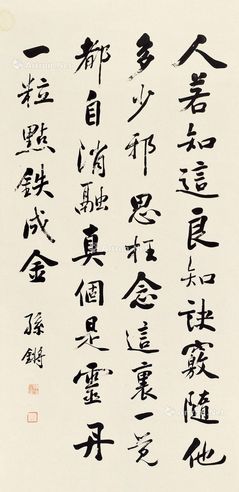 人若知這良知訣竅隨他
多少邪思枉念這裏一覺
都自消融真個是靈丹
一粒點鉄成金
孫鏘